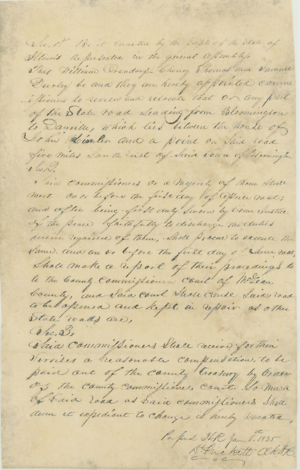 Sec. 1st Be it enacted by the People of the State of
Illinois represented in the general assembly
That William Henry Thomas and Samuel
Durley be and they are hereby appointed comm
issioners to review and relocate that or any part
of the State road leading from Bloomington
to Danville, which lies between the house of
John and a point on said road
five miles south east of said town of Bloomington
Sec 2.
Said commissioners or a majority of them shall
meet on or before the first day of next;
and after being first duly sworn by some justice
of the peace faithfully to discharge the duties
herein required of them, shall proceed to execute the
same and on or before the first day of next
shall make a report of their proceedings to
to the County Commissioners court of McLean
County, and said court shall cause said road
to be opened and kept in repair as other
State roads are;
Sec. 3.
Said Commissioners shall receive for their
services a reasonable compensation to be
paid out of the county treasury by order
of the county commissioners court so much
of said road as said commissioners shall
deem it expedient to change is hereby vacated.
Passed H R Jan 1835
D Prickett Clk H R